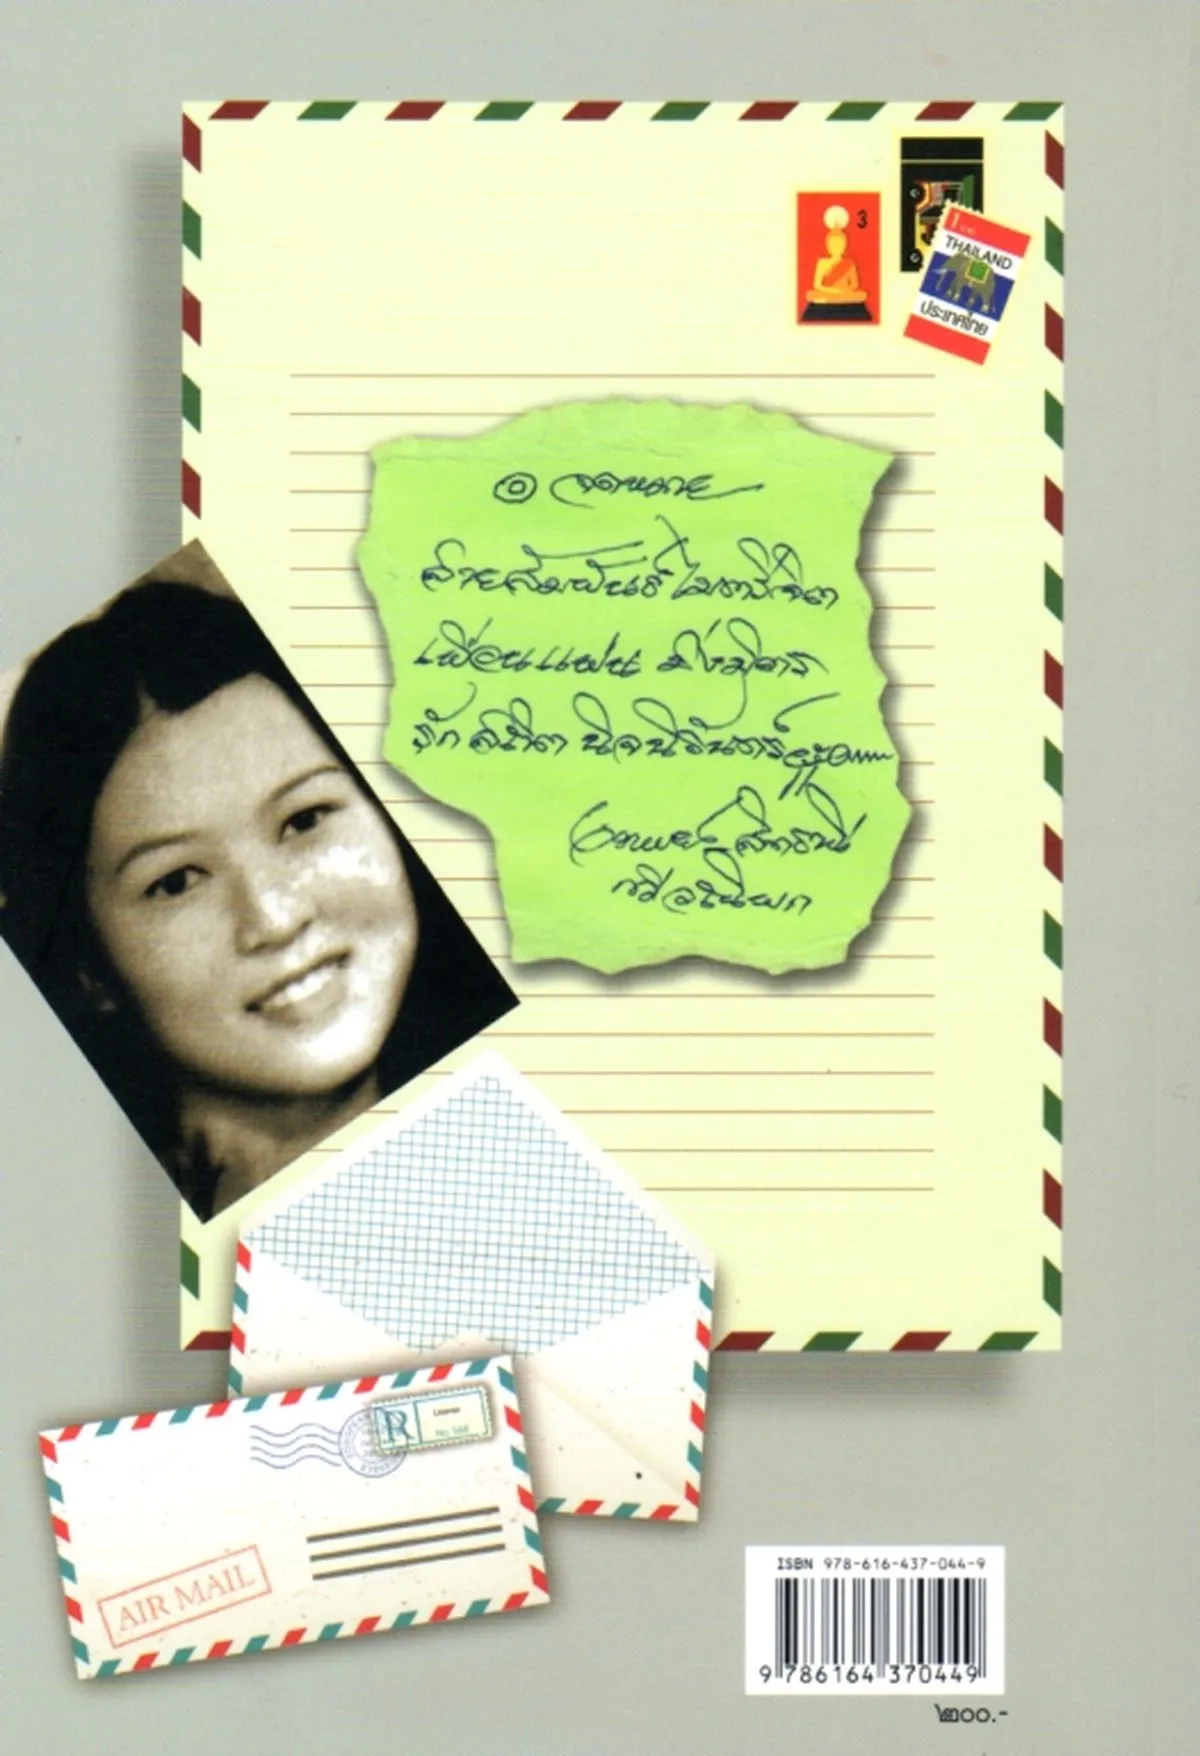 3
THAILAND
ประเทศไทย
๏ จดหมาย
สายสัมพันธ์ ไมตรีจิต
เพื่อนแฟน มิ่งมิตร
รัก สถิต นิจนิรันดร์
R
No. 168
AIR MAIL
ISBN 978-616-437-044-9
9 786164 370449
๒๐๐.-